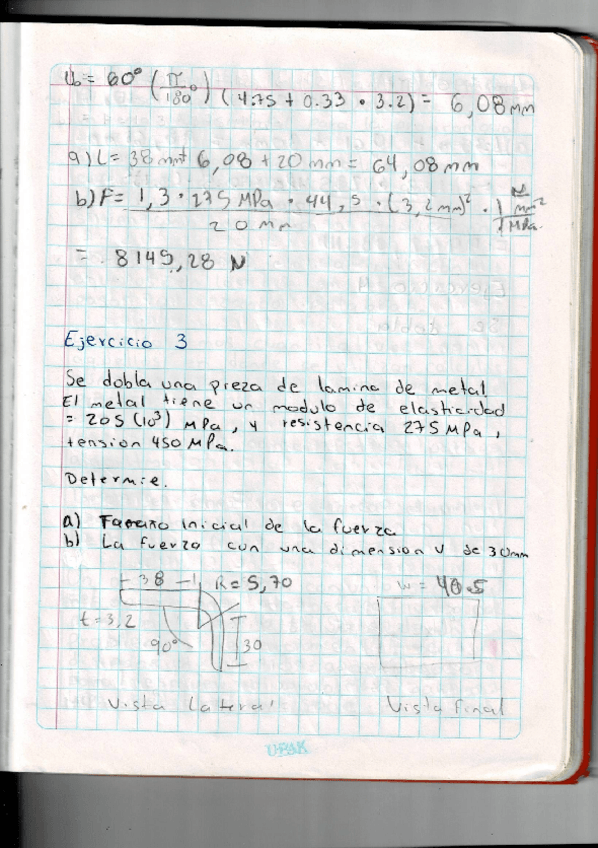 Ub = 60° (π/180°) (4.75 + 0.33 • 3.2) = 6,08 mm
a) L = 38 mm + 6,08 + 20 mm = 64,08 mm
b) F = 1,3 • 275 MPa • 44,5 • (3,2 mm)² • 1 N/mm²
20 mm 1 MPa.
= 8149,28 N
Ejercicio 3
Se dobla una pieza de lamina de metal
El metal tiene un modulo de elasticidad
= 205 (10³) MPa, y resistencia 275 MPa,
tension 450 MPa.
Determie.
a) Tamaño inicial de la fuerza
b) La fuerza con una dimension V de 30mm
38 R = 5,70 w = 40.5
t = 3,2
90° 30
Vista Lateral Vista final